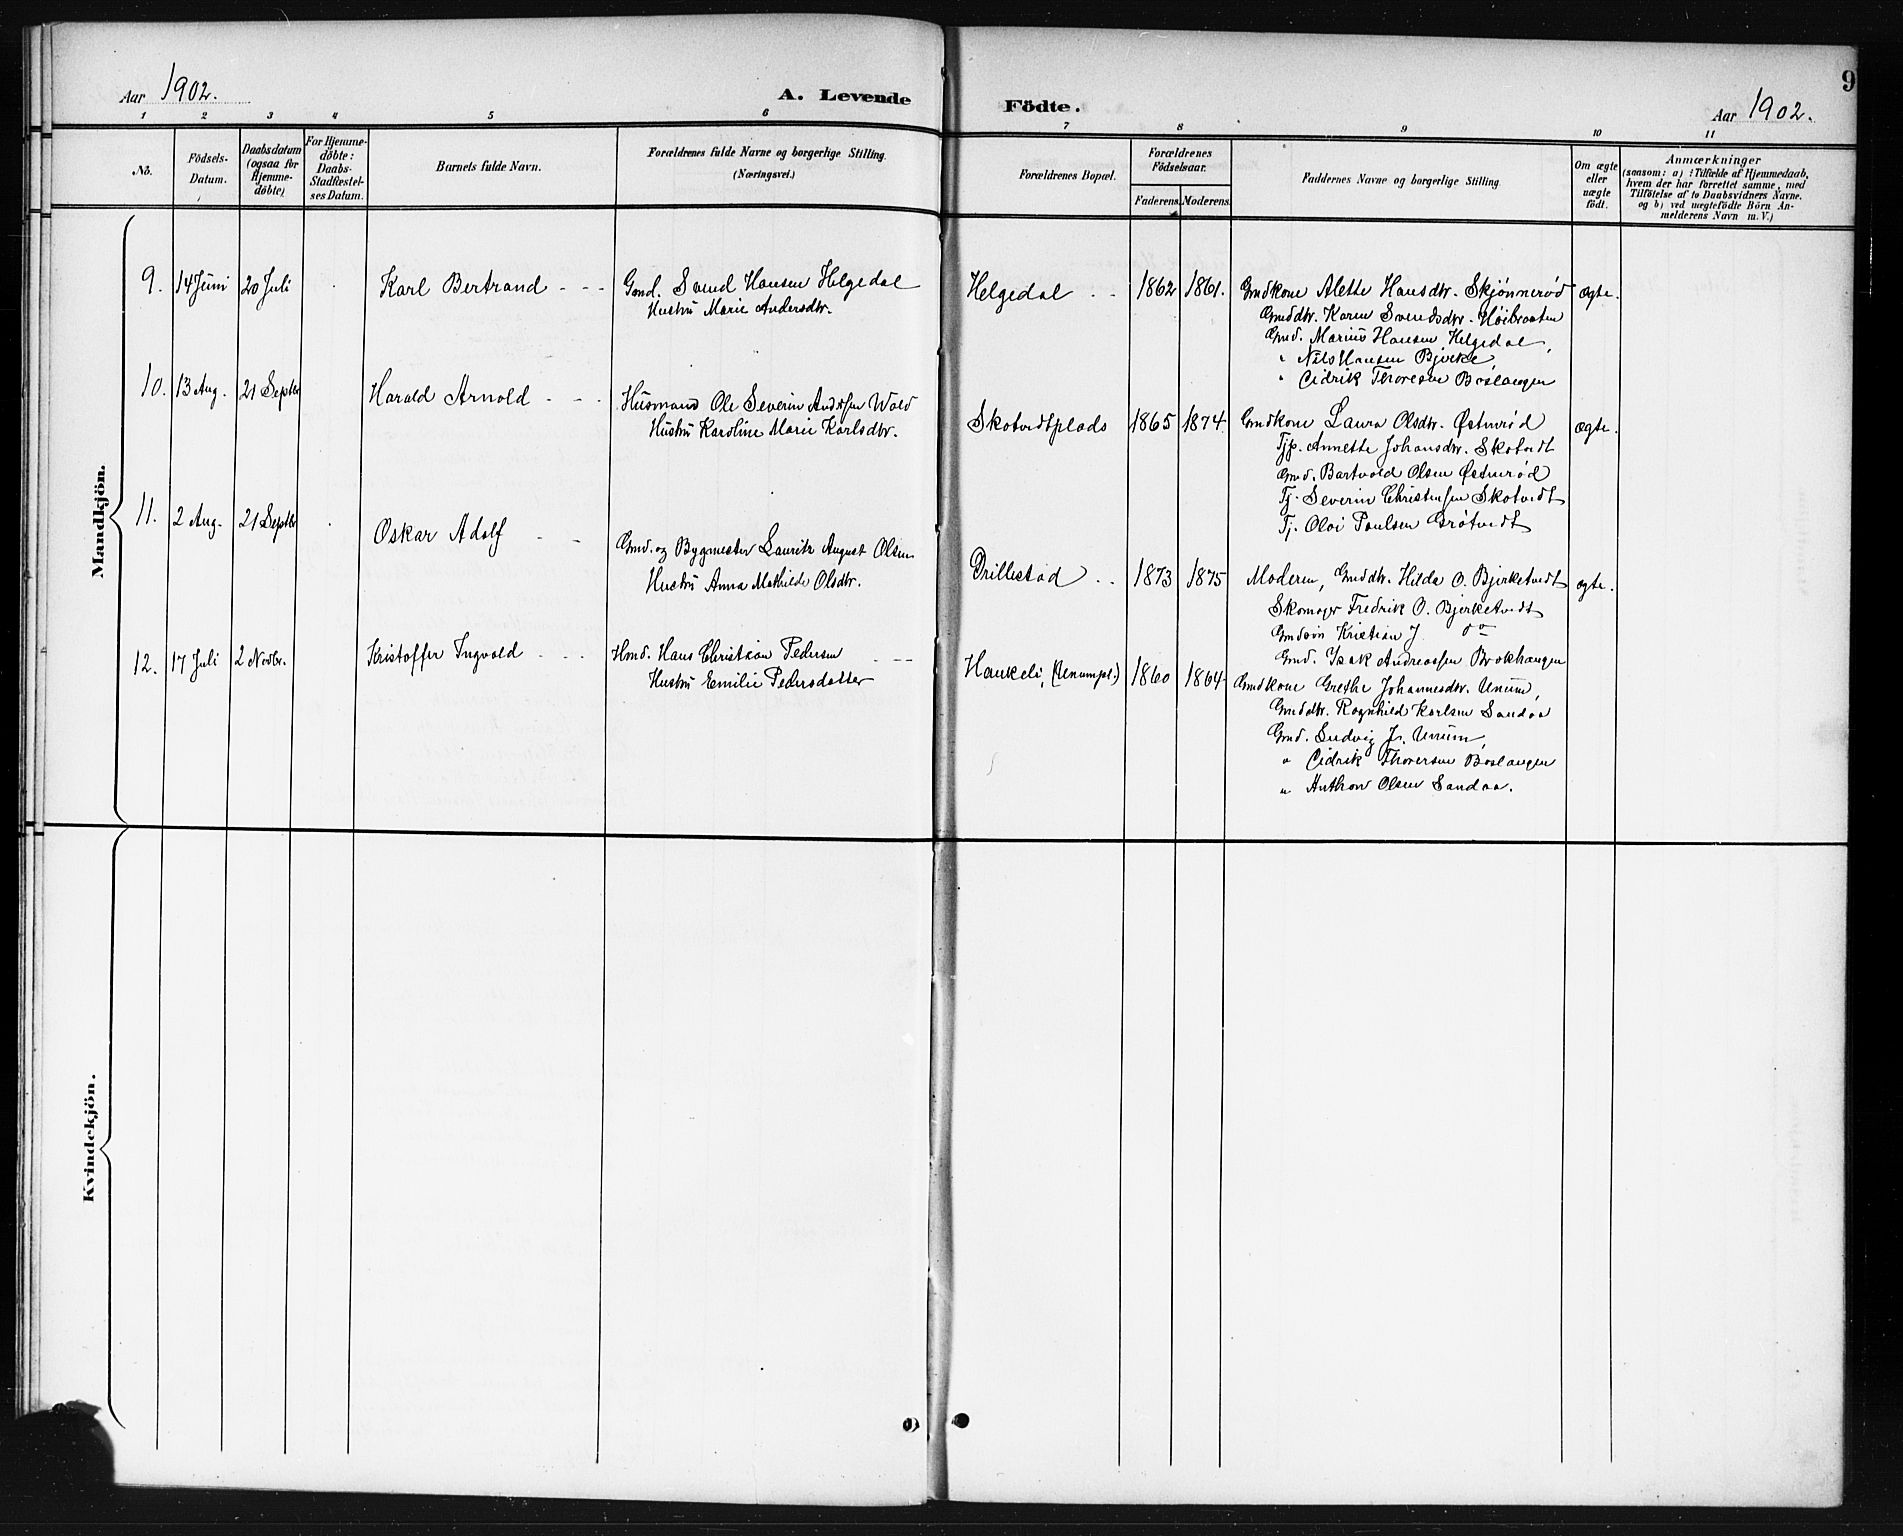 Aar 1902.
A. Levende
Födte.
Aar 1902.
9
1 2 3 4 5 6 7 8 9 10 11
No.
Födsels-
Datum.
Daabsdatum
(ogsaa for
Hjemme-
döbte)
For Hjemme-
döbte:
Daabs-
Stadfæstel-
ses Datum.
Barnets fulde Navn.
Forældrenes fulde Navne og borgerlige Stilling.
(Næringsvei.)
Forældrenes Bopæl.
Forældrenes
Födselsaar.
Faderens. Moderens.
Faddernes Navne og borgerlige Stilling.
Om ægte
eller
uægte
födt.
Anmærkninger
(saasom: a) i Tilfælde af Hjemmedaab,
hvem der har forrettet samme, med
Tilföielse af to Daabsvidners Navne.
og b) ved uægtefödte Börn An-
melderens Navn m. V.)
Mandkjön.
9. 14 Juni 20 Juli Karl Bertrand - - -
Gmd. Svend Hansen Helgedal
Hustru Marie Andersdtr.
Helgedal - - 1862 1861.
Gmdkone Alette Hansdtr. Skjønnerød
Gmddtr. Karen Svendsdtr. Høibraaten
Gmd. Marius Hansen Helgedal,
" Nils Hansen Bjerke
" Cidrik Thoresen Boslangen
ægte.
10. 13 Aug. 21 Septbr Harald Arnold - - -
Husmand Ole Severin Andersen Wold
Hustru Karoline Marie Karlsdtr.
Skotvedtplads 1865 1874
Gmdkone Laura Olsdtr. Østnrød
Tjp. Annette Johansdtr. Skotvedt
Gmd. Bartvold Olsen Østnrød
Tj. Severin Christensen Skotvedt
Tj. Olvi Paulsen Grøtvedt
ægte.
11. 2 Aug. 21 Septbr Oskar Adolf - -
Gmd. og Bygmester Lauritz August Olsen
Hustru Anna Mathilde Olsdtr.
Drillestad - - 1873 1875
Moderen, Gmddtr. Hilda O. Bjerketvedt
Skomager Fredrik O. Bjerketvedt
Gmdsøn Kristian J. do
Gmd. Isak Andreassen Brokhangen
ægte.
12. 17 Juli 2 Novbr. Kristoffer Ingvald - - -
Hmd. Hans Christian Pedersen - - -
Hustru Emilie Pedersdatter
Haukeli, (Unumpl.) 1860 1864
Gmdkone Grethe Johannesdtr. Unum,
Gmddtr. Ragnhild Karlsen Sandaa
Gmd. Ludvig Jr. Unum,
" Cidrik Thoresen Boslangen
" Anthon Olsen Sandaa.
Kvindekjön.